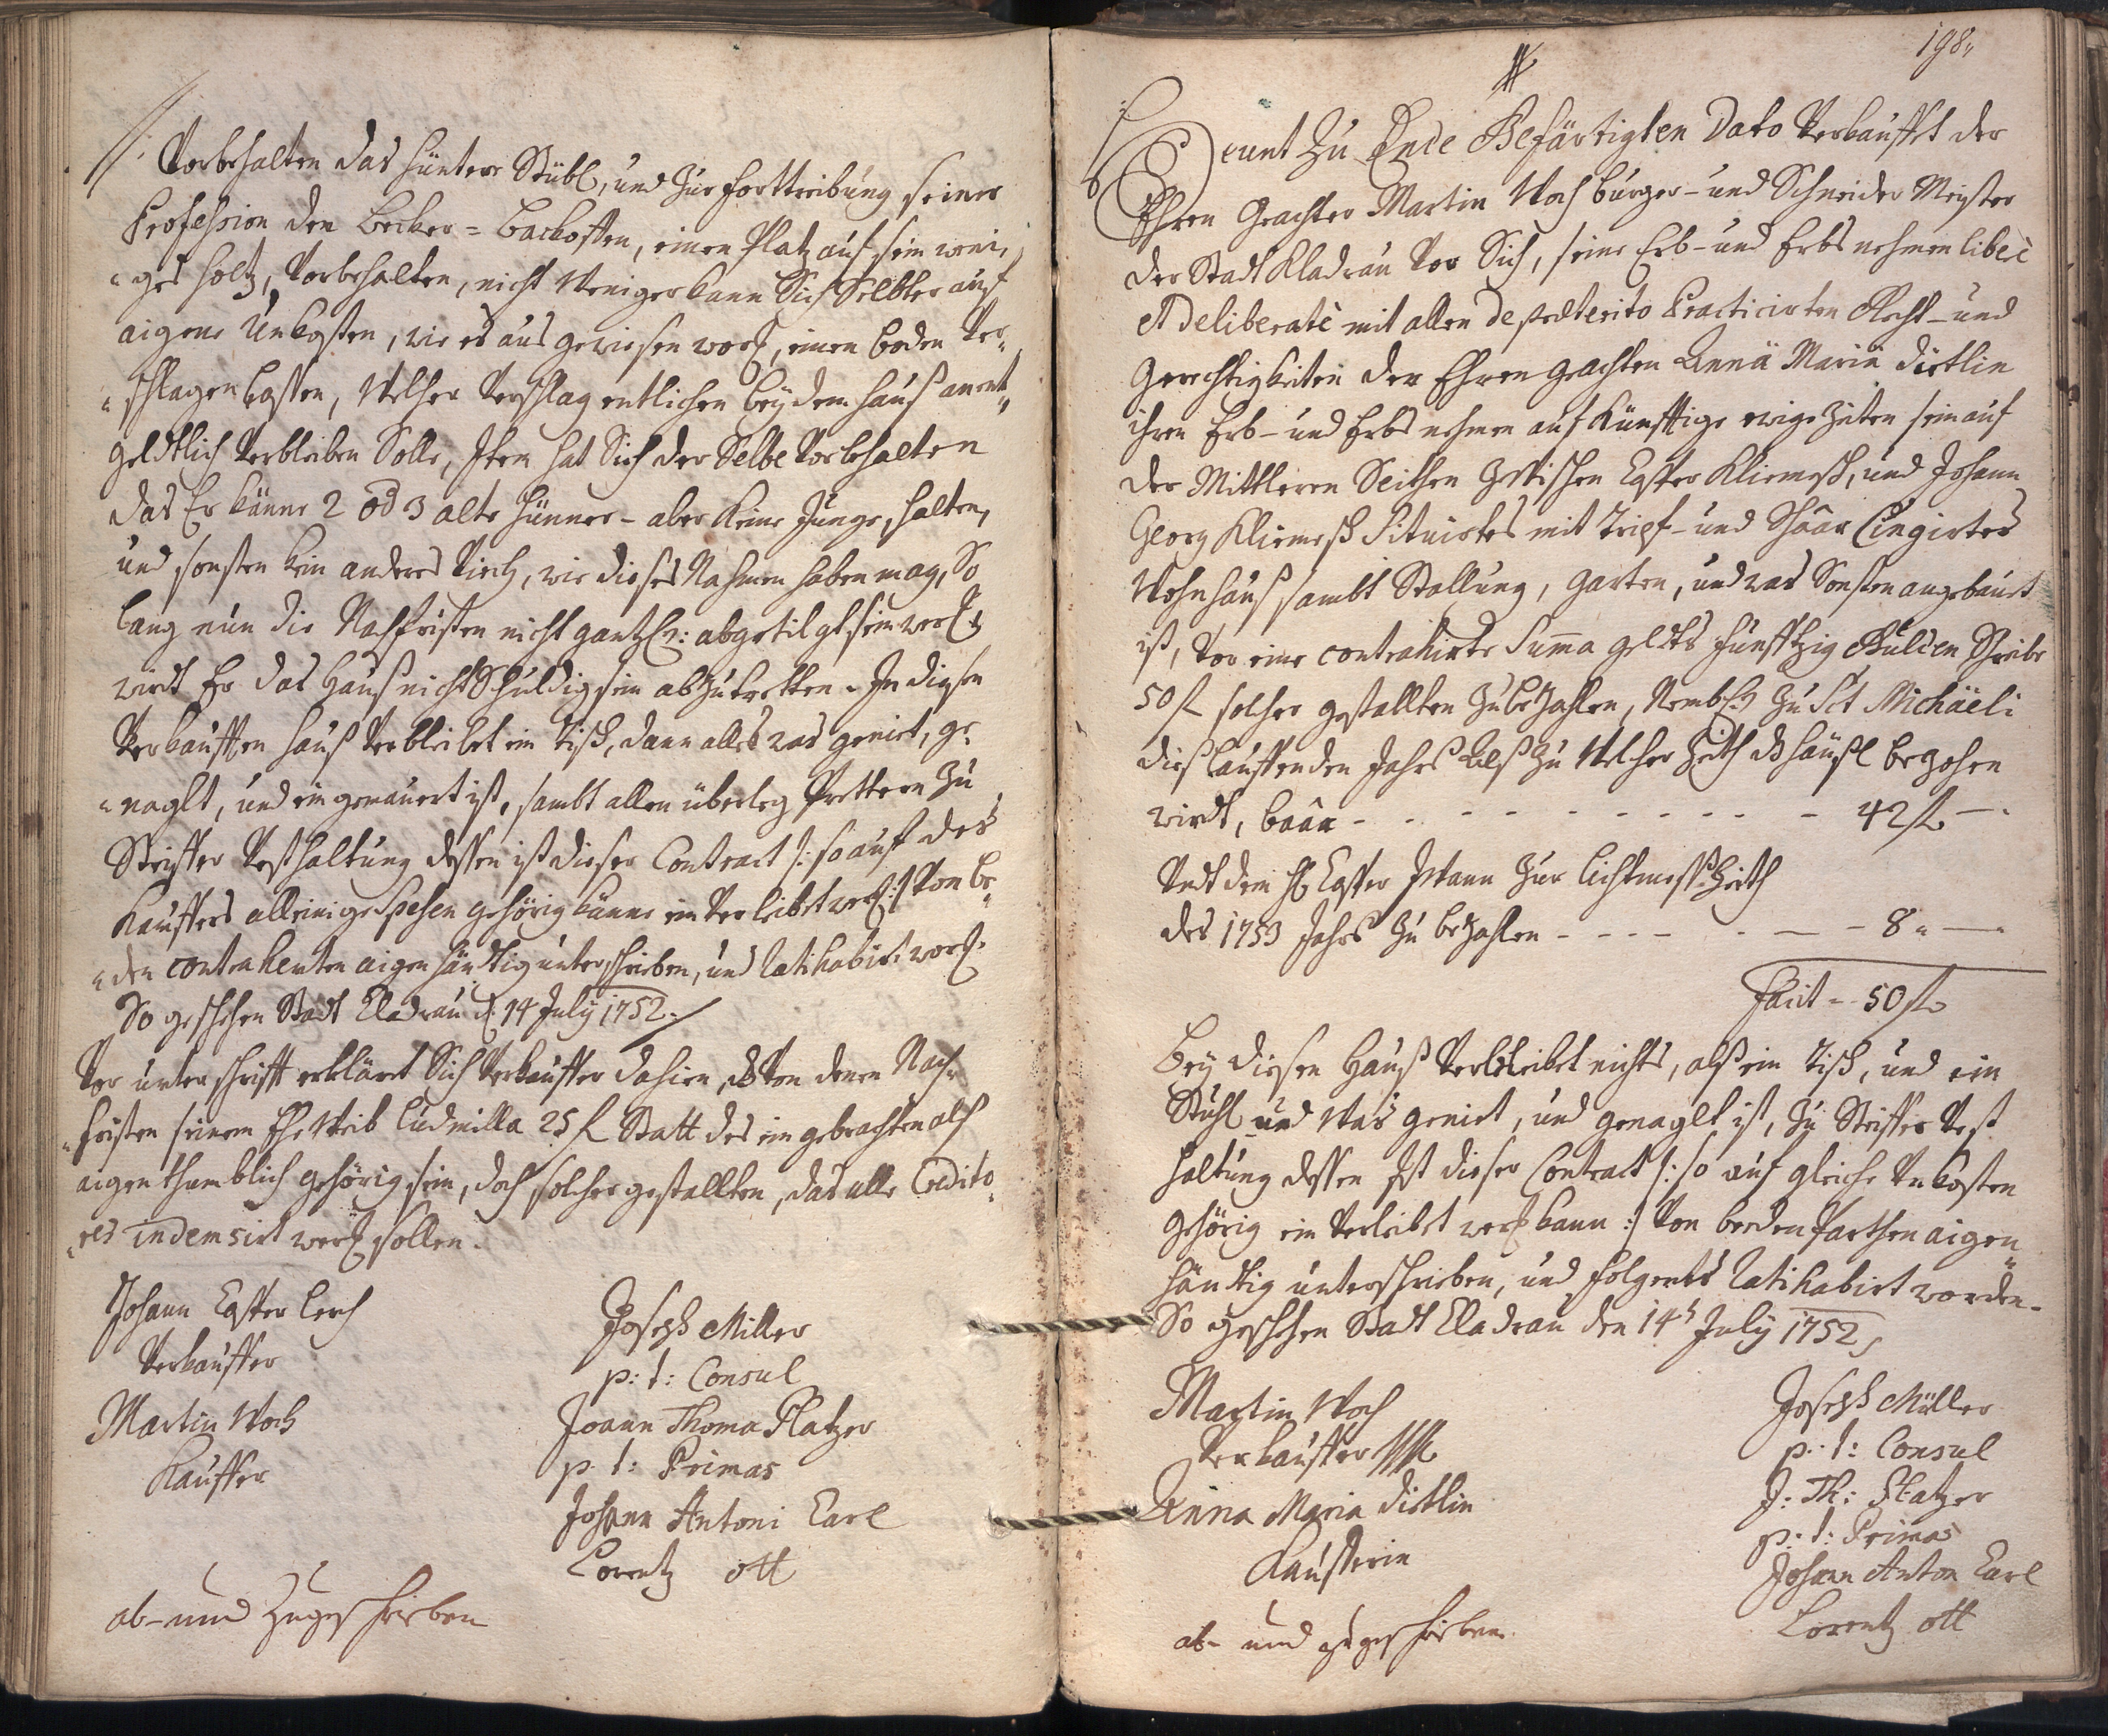 //: Vorbehalten das hüntere Stübl, und Zur forttreibung seiner
Profession den Becker = Backoffen, einen Platz auf sein weni¸
„ges holtz, Vorbehalten, nicht Weniger kann Sich Selbter auf
aigene Unkosten, wie es aus gewiesen word, einen boden Ver¸
„schlagen lassen, Welcher Verschlag entlichen bey dem Hauß anent„
geldtlich Verbleiben Solle, Item hat Sich der Selbe Vorbehalten
das Er känne 2 od 3 alte hünner – aber Keine Junge, halten,
und sonsten kein anderes Viech, wie dieses Nahmen haben mag, So
lang nun die Nachfristen nicht gantzl: abgetilgt sein werd,
wirdt Er das Hauß nicht Schuldig sein abzutretten. In diesen
Verkaufften Hauß Verbleibet ein Tisch, dann alles was geniet, ge¸
„naglt, und eingemauert ist, sambt allen überleg Prettern Zu
Steiffer Vesthaltung dessen ist dieser Contract /: so auf des
Kauffers alleinige Spesen gehörig känne ein Verleibet werd :/ Von be¸
„den contrahenten aigenhändtig unterschrieben, und ratihabirt word.
So geschehen Stadt Cladrau d. 14 July 1752.
Vor unterschrifft erklärt Sich Verkauffer dahien, dß Von denen Nach¸
„fristen seinem Ehe Weib Ludmilla 25 f Statt des eingebrachten alß
aigenthumblich gehörig sein, doch solcher gestallten, das alle Credito¸
„res indemsirt werd sollen.
Johann Casper Lerch
Verkauffer
Martin Woch
Kauffer
Joseph Miller
p: t: Consul
Joann Thoma Platzer
p. t: Primas
Johann Antoni Carl
Lorentz ott
ab- und Zugeschrieben
198„
Heunt Zu Ende Gefärtigten Dato Verkaufft der
Ehren Geachter Martin Woch burger- und Schneider Meister
der Stadt Kladrau Vor Sich, seine Erb- und Erbs nehmen liberè
et deliberatè mit allen de praeterito Practicirten Recht- und
Gerechtigkeiten der Ehren geachten Annä Mariä dietlin
ihren Erb- und Erbs nehmen auf Künfftige ewige Zeiten sein auf
der Mittleren Seithen Zwischen Casper Kliemesch, und Johann
Georg Kliemesch Situirtes mit Tripf- und Schaar Cingirtes
Wohnhauß sambt Stallung, garten, und was Sonsten angebaut
ist, vor eine contrahirte Summa geldts funfftzig Gulden Schreibe
50 f solcher gestallten Zubezahlen, Nembl: Zu Sct Michäeli
dießlauffenden Jahrs Alß Zu Welcher Zeith dß häußl bezohen
wirdt, baar - - - - - - - - - - - 42 f —
Undt dem H Casper Mann Zur lichtmess Zeith
des 1753 Jahrs Zu bezahlen - - - - - - - 8 „ —
Facit - 50 f
Bey diesen Hauß Verbleibet nichts, alß ein Tisch, und ein
Stuhl und Was geniet, und genaglt ist, Zu Steiffer Vest
haltung dessen Ist dieser Contract /: so auf gleiche Unkosten
Gehörig ein Verleibt werd kann :/ Von beeden Parthen aigen„
händtig unterschrieben, und folgents ratihabirt worden.
So geschehen Stadt Cladrau den 14t July 1752
Martin Woch
Verkauffer
Anna Maria dietlin
Kaufferin
Joseph Müller
p. t: Consul
J: Th: Platzer
p: t: Primas
Johann Anton Carl
Lorentz ott
ab- und zugeschrieben.